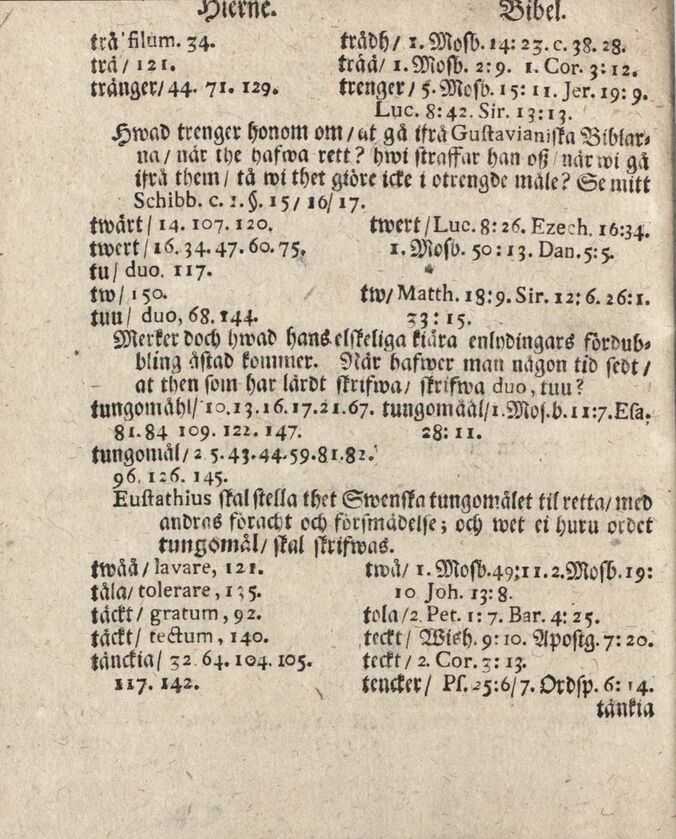 Hierne. Bibel.
trå filum. 34. trådh/ 1. Mosb. 14: 23. c. 38. 28.
trä/ 121. trää/ 1. Mosb. 2: 9. 1. Cor. 3: 12.
tränger/ 44. 71. 129. trenger/ 5. Mosb. 15: 11. Jer. 19: 9.
Luc. 8: 42. Sir. 13: 13.
Hwad trenger honom om/ at gå ifrå Gustavianiska Biblar-
na/ när the hafwa rett? hwi straffar han oß/ när wi gå
ifrå them/ tå wi thet giöre icke i otrengde måle? Se mitt
Schibb. c. 1. §. 15/ 16/ 17.
twärt/ 14. 107. 120. twert/ Luc. 8: 26. Ezech. 16: 34.
twert/ 16. 34. 47. 60. 75, 1. Mosb. 50: 13. Dan. 5: 5.
tu/ duo. 117.
tw/ 150. tw/ Matth. 18: 9. Sir. 12: 6. 26: 1.
tuu/ duo, 68. 144. 33: 15.
Merker doch hwad hans elskeliga kiära enlydingars fördub-
bling åstad kommer. När hafwer man någon tid sedt/
at then som har lärdt skrifwa/ skrifwa duo, tuu?
tungomähl/ 10. 13. 16. 17. 21. 67. tungomåål/ 1. Mos. b. 11: 7. Esa.
81. 84 109. 122. 147. 28: 11.
tungomål/ 2 5. 43. 44. 59. 81. 82.
96. 126. 145.
Eustathius skal stella thet Swenska tungomålet til retta/ med
andras föracht och försmädelse; och wet ei huru ordet
tungomål/ skal skrifwas.
twåå/ lavare, 121. twå/ 1. Mosb. 49: 11. 2. Mosb. 19:
tåla/ tolerare, 135. 10 Joh. 13: 8.
täckt/ gratum, 92. tola/ 2 Pet. 1: 7. Bar. 4: 25.
täckt/ tectum, 140. teckt/ Wish. 9: 10. Apostg. 7: 20.
tänckia/ 32 64. 104. 105. teckt/ 2. Cor. 3: 13.
117. 142. tencker/ Ps. 25: 6/ 7. Ordsp. 6: 14.
tänkia